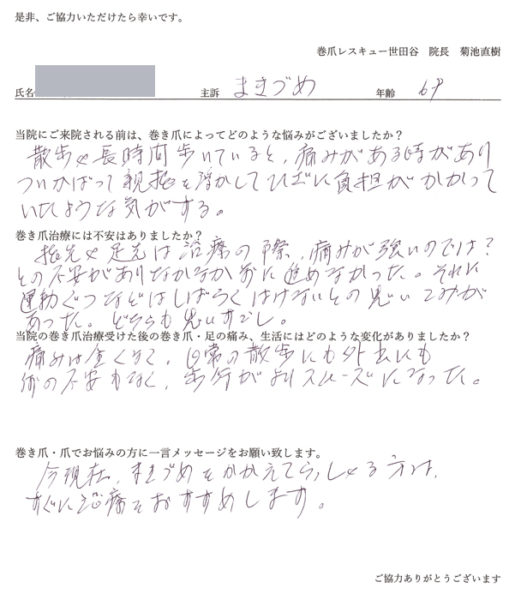 是非、ご協力いただけたら幸いです。
巻爪レスキュー世田谷　院長　菊池直樹
氏名　主訴　まきづめ　年齢　69
当院にご来院される前は、巻き爪によってどのような悩みがございましたか？
散歩や長時間歩いていると、痛みがある時があり
ついかばって親指を浮かしてひざに負担がかかって
いたような気がする。
巻き爪治療には不安はありましたか？
指先や足先は治療の際、痛みが強いのでは？
との不安がありなかなか前に進めなかった。それに
運動ぐつなどはしばらくはけないとの思いこみが
あった。どちらも思いすごし。
当院の巻き爪治療受けた後の巻き爪・足の痛み、生活にはどのような変化がありましたか？
痛みは全くなく、日常の散歩にも外出にも
何の不安もなく、歩行がよりスムーズになった。
巻き爪・爪でお悩みの方に一言メッセージをお願い致します。
今現在、まきづめをかかえてらっしゃる方は、
すぐに治療をおすすめします。
ご協力ありがとうございます